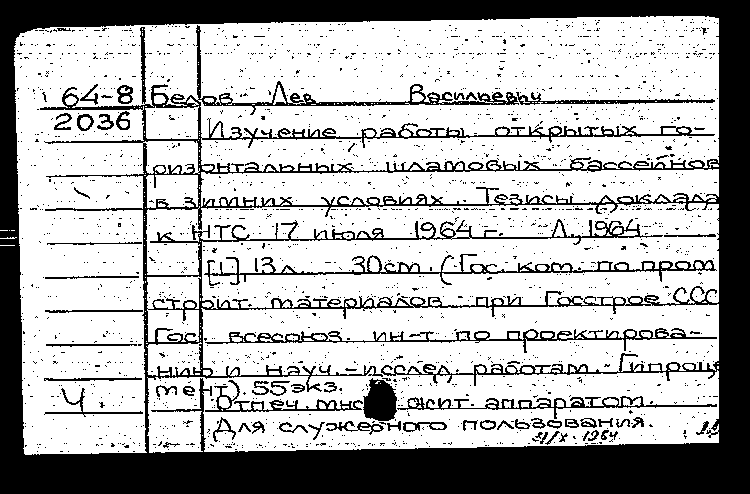 64-8 Белов, Лев Васильевич
2036 Изучение работы открытых го-
ризонтальных шламовых бассейнов
в зимних условиях. Тезисы доклада
к НТС 17 июля 1964 г. Л., 1964
[1], 13 л. 30 см. (Гос. ком. по пром
строит. материалов при Госстрое ССС
Гос. всесоюз. ин-т по проектирова-
нию и науч.-исслед. работам.-Гипроце
мент) 55 экз.
Ч. Отпеч. мно жит. аппаратом.
Для служебного пользования.
/X-1964